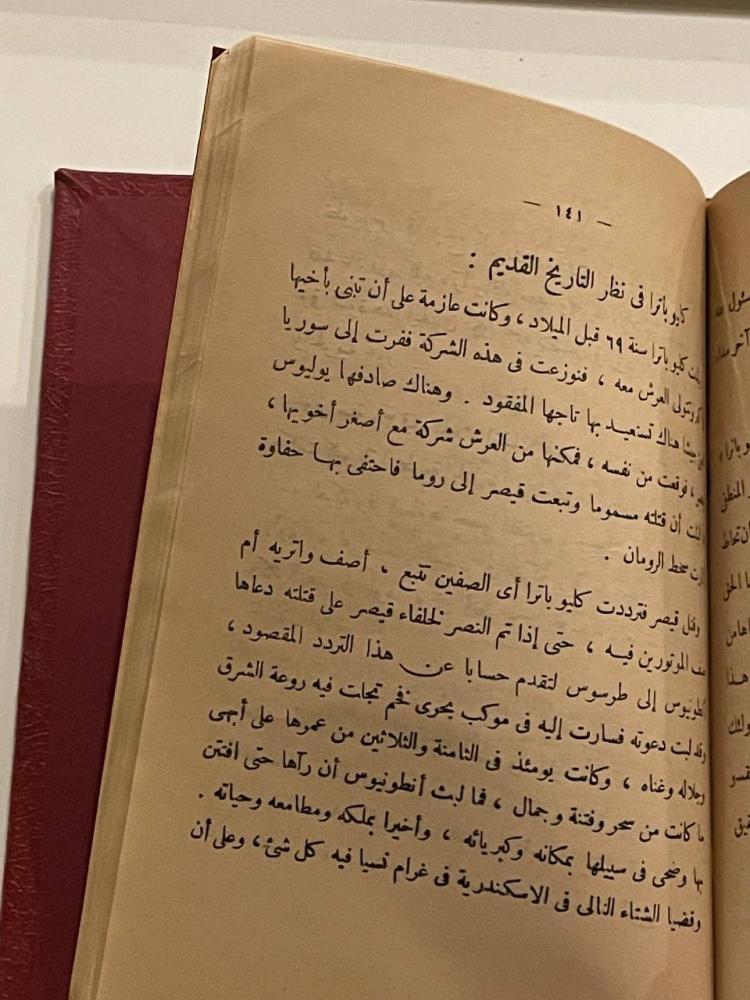 — ١٤١ —
كليو باترا فى نظر التاريخ القديم :
كليو باترا سنة ٦٩ قبل الميلاد ، وكانت عازمة على أن تبنى بأخيها
وتتولى العرش معه ، فنوزعت فى هذه الشركة ففرت إلى سوريا
هناك تستعيد بها تاجها المفقود . وهناك صادفها يوليوس
، فوقعت من نفسه ، فمكنها من العرش شركة مع أصغر أخويها ،
أن قتلته مسموما وتبعت قيصر إلى روما فاحتفى بها حفاوة
سخط الرومان .
وقتل قيصر فترددت كليو باترا أى الصفين تتبع ، أصف واتريه أم
صف الموتورين فيه ، حتى إذا تم النصر لخلفاء قيصر على قتلته دعاها
أنطونيوس إلى طرسوس لتقدم حسابا عن هذا التردد المقصود ،
وقد لبت دعوته فسارت إليه فى موكب بحرى فخم تجلت فيه روعة الشرق
وجلاله وغناه ، وكانت يومئذ فى الثامنة والثلاثين من عمرها على أبهى
ما كانت من سحر وفتنة وجمال ، فما لبث أنطونيوس أن رآها حتى افتتن
بها وضحى فى سبيلها بمكانه وكبريائه ، وأخيرا بملكه ومطامعه وحياته .
وقضيا الشتاء التالى فى الاسكندرية فى غرام نسيا فيه كل شئ ، وعلى أن
آخر
المنطق
الحق
هذا